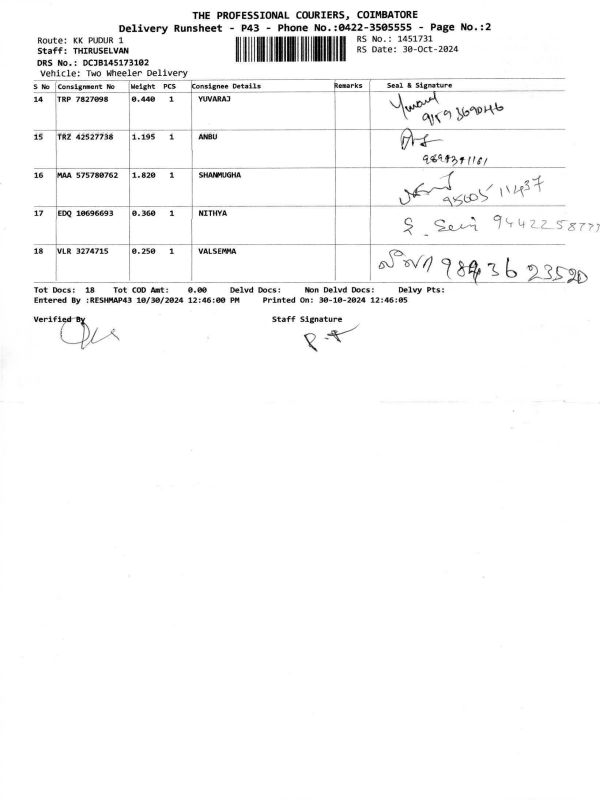 THE PROFESSIONAL COURIERS, COIMBATORE
Delivery Runsheet - P43 - Phone No.:0422-3505555 - Page No.:2
Route: KK PUDUR 1 RS No.: 1451731
Staff: THIRUSELVAN RS Date: 30-Oct-2024
DRS No.: DCJB145173102
Vehicle: Two Wheeler Delivery
S No Consignment No Weight PCS Consignee Details Remarks Seal & Signature
14 TRP 7827098 0.440 1 YUVARAJ
15 TRZ 42527738 1.195 1 ANBU
16 MAA 575780762 1.820 1 SHANMUGHA
17 EDQ 10696693 0.360 1 NITHYA 9442258777
18 VLR 3274715 0.250 1 VALSEMMA
Tot Docs: 18 Tot COD Amt: 0.00 Delvd Docs: Non Delvd Docs: Delvy Pts:
Entered By :RESHMAP43 10/30/2024 12:46:00 PM Printed On: 30-10-2024 12:46:05
Verified By Staff Signature